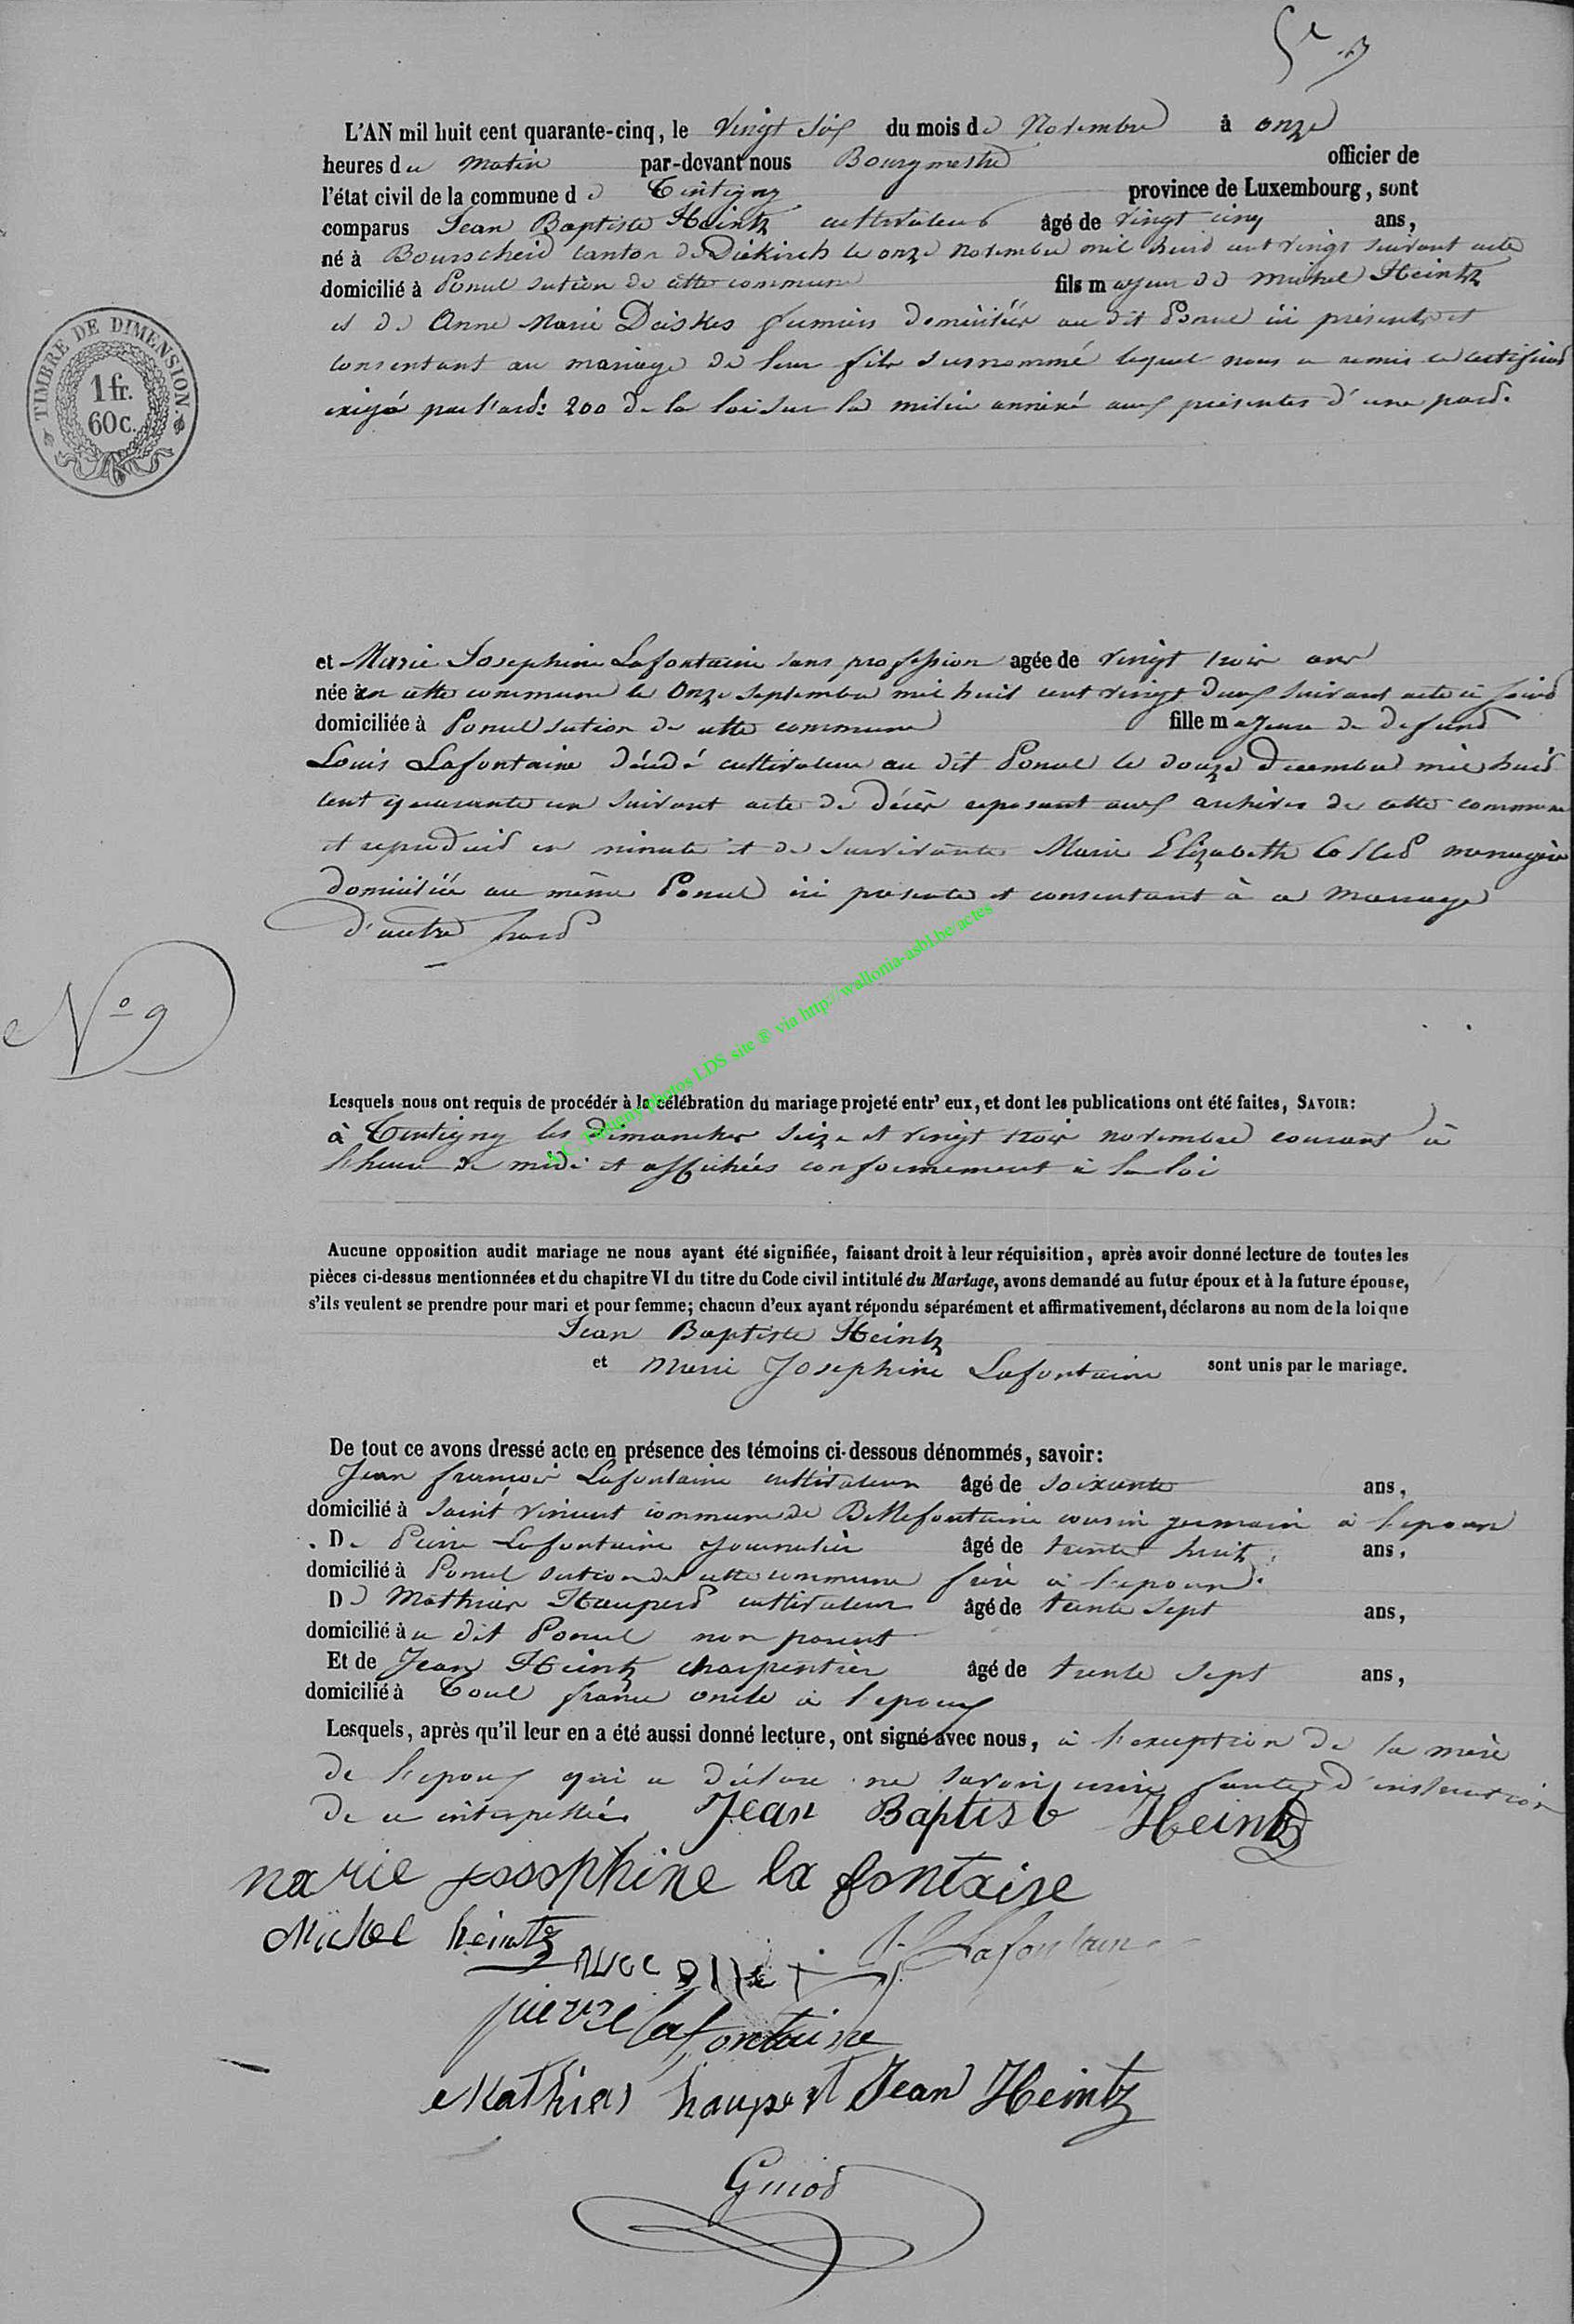 L'AN mil huit cent quarante-cinq, le vingt six du mois de Novembre à onze
heures du matin par-devant nous Bourgmestre officier de
l'état civil de la commune de Tintigny province de Luxembourg, sont
comparus Jean Baptiste Heintz cultivateur âgé de vingt cinq ans,
né à Bourscheid canton de Diekirch le onze novembre mil huit cent vingt suivant acte
domicilié à Ponul section de cette commune fils majeur de Michel Heintz
et de Anne Marie fermiers domiciliés au dit Ponul ici présents et
consentant au mariage de leur fils susnommé lequel nous a remis le certificat
exigé par l'art: 200 de la loi sur la milice annexé aux présentes d'une part.
TIMBRE DE DIMENSION.
1 fr.
60 c.
et Marie Josephine Lafontaine sans profession agée de vingt trois ans
née à en cette commune le onze septembre mil huit cent vingt deux suivant acte ci joint
domiciliée à Ponul section de cette commune fille majeure de defunt
Louis Lafontaine décédé cultivateur au dit Ponul le douze Decembre mil huit
cent quarante un suivant acte de décès reposant aux archives de cette commune
et reproduit en minute et de survivante Marie Elizabeth menagère
domiciliée au même Ponul ici présente et consentant à ce mariage
d'autre part
No 9
Lesquels nous ont requis de procéder à la célébration du mariage projeté entr' eux, et dont les publications ont été faites, SAVOIR:
à Tintigny les dimanches seize et vingt trois novembre courant à
l'heure de midi et affichées conformement à la loi
Aucune opposition audit mariage ne nous ayant été signifiée, faisant droit à leur réquisition, après avoir donné lecture de toutes les
pièces ci-dessus mentionnées et du chapitre VI du titre du Code civil intitulé du Mariage, avons demandé au futur époux et à la future épouse,
s'ils veulent se prendre pour mari et pour femme; chacun d'eux ayant répondu séparément et affirmativement, déclarons au nom de la loi que
Jean Baptiste Heintz
et Marie Josephine Lafontaine sont unis par le mariage.
De tout ce avons dressé acte en présence des témoins ci-dessous dénommés, savoir:
Jean francois Lafontaine cultivateur âgé de soixante ans,
domicilié à Saint Vincent commune de Bellefontaine cousin germain à l'epouse
De Pierre Lafontaine journalier âgé de trente huit ans,
domicilié à Ponul section de cette commune frère à l'epouse.
De Mathias Haupert cultivateur âgé de trente sept ans,
domicilié au dit Ponul non parent
Et de Jean Heintz charpentier âgé de trente sept ans,
domicilié à Toul france oncle à l'epoux
Lesquels, après qu'il leur en a été aussi donné lecture, ont signé avec nous, à l'exception de la mère
de l'epoux qui a déclaré ne savoir ecrire faute d'instruction
de ce interpellée Jean Baptist Heintz
marie josophine la fontaise
Michel heintz
Lafontaine
pierre lafontaine
Mathias haupert Jean Heintz
Guiot
A.C. Tintigny photos LDS site ® via http://wallonia-asbl.be/actes